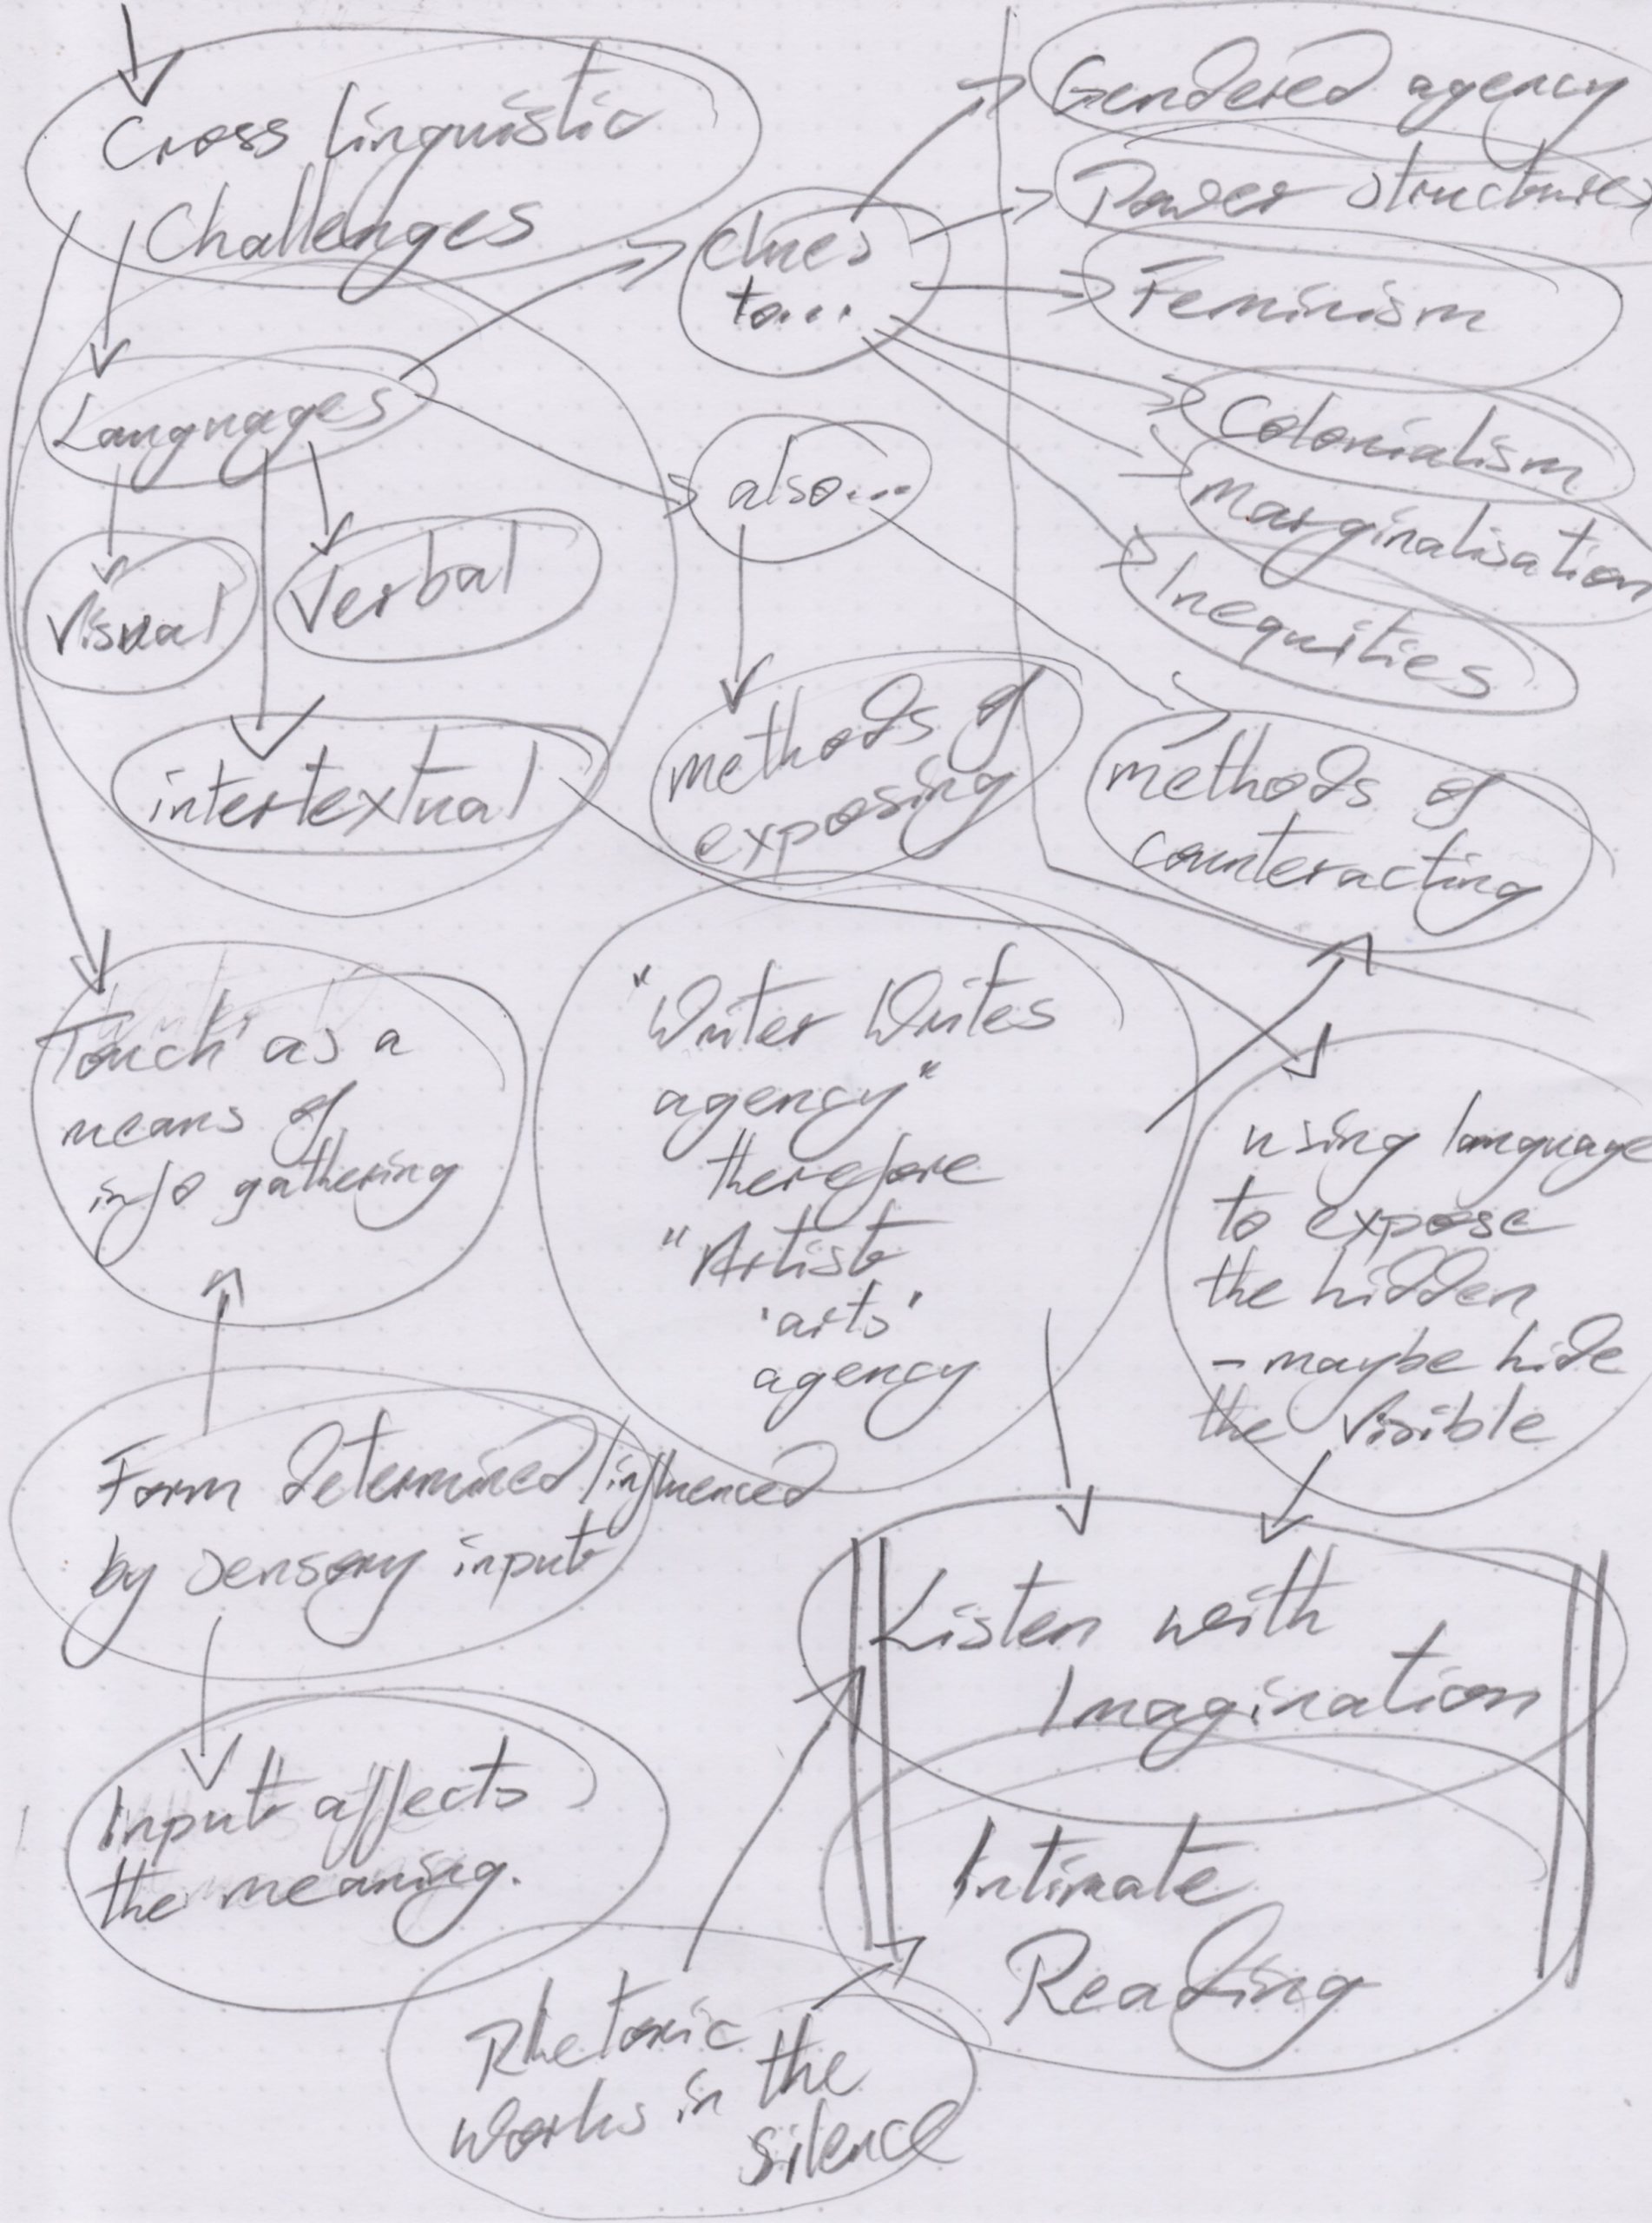 Cross linguistic
Challenges
Gendered agency
Power structures
clues
to...
Feminism
Languages
Colonialism
also...
Marginalisation
Visual
Verbal
Inequities
intertextual
methods of
exposing
methods of
counteracting
Touch as a
means of
info gathering
"Writer Writes
agency"
therefore
"Artist
'arts'
agency
using language
to expose
the hidden
- maybe hide
the visible
Form determined/influenced
by sensory input
Listen with
Imagination
Input affects
the meaning.
Intimate
Reading
Rhetoric
works in the
silence